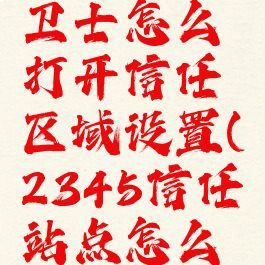 卫士怎么
打开信任
区域设置(
2345信任
站点怎么